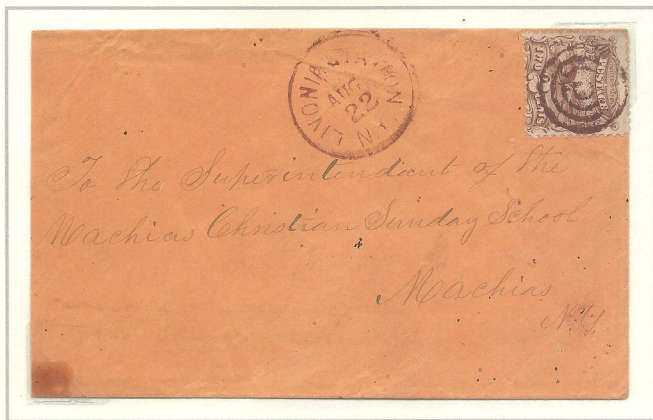 LIVONIA STATION
AUG
22
N.Y.
To the Superintendant of the
Machias Christian Sunday School
Machias
N.Y.